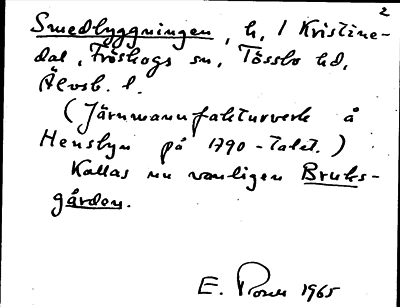 2
Smedbyggningen, h, 1 Kristine-
dal, Fröskogs sn, Tössbo hd,
Älvsb. l.
(Järnmanufakturverk å
Henslyn på 1790-talet.)
Kallas nu vanligen Bruks-
gården.
E. 1965